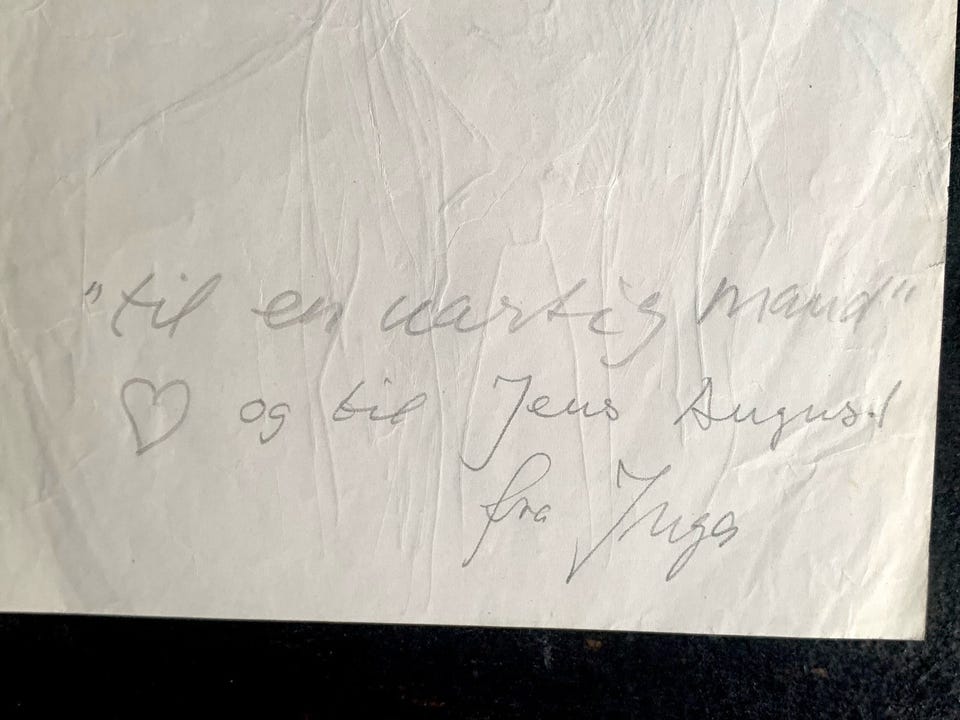 "til en uartig mand"
og til Jens August
fra Inga